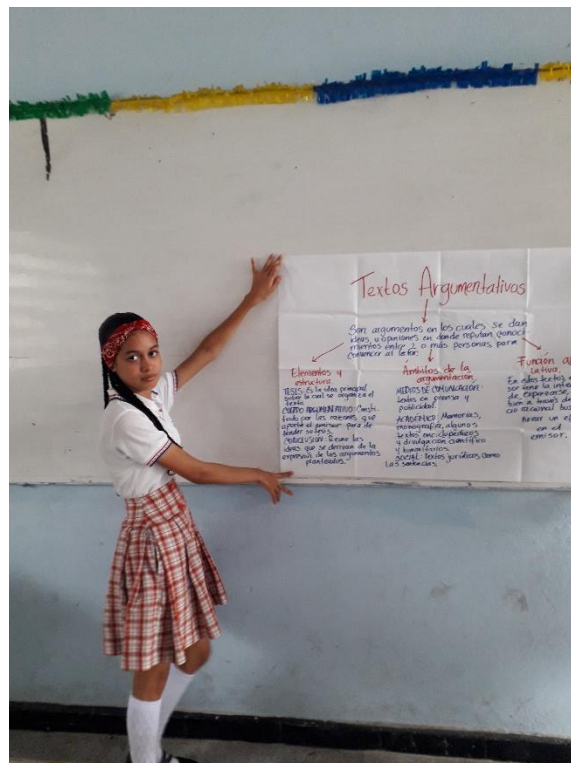 Textos Argumentativos
Son argumentos en los cuales se dan
ideas u opiniones en donde refutan conoci
mientos entre 2 o más personas, para
convencer al lector.
Elementos y
estructura.
TESIS: Es la idea principal
sobre la cual se organiza el
texto.
CUERPO ARGUMENTATIVO: Consti
tuido por las razones que
aporta el emisor para de
fender su tesis.
CONCLUSION: Reune las
ideas que se derivan de la
exposición de los argumentos
planteados.
Ámbitos de la
argumentación
MEDIOS DE COMUNICACION:
textos en prensa y
publicidad.
ACADEMICO: Memorias,
monografia, algunos
textos enciclopedicos
y divulgación científica
y humanitarios.
SOCIAL: Textos jurídicos como
las sentencias.
Función
lativa.
En estos textos
sor tiene la in
de expresarse,
bien a través de
cio racional bus
en el
emisor.